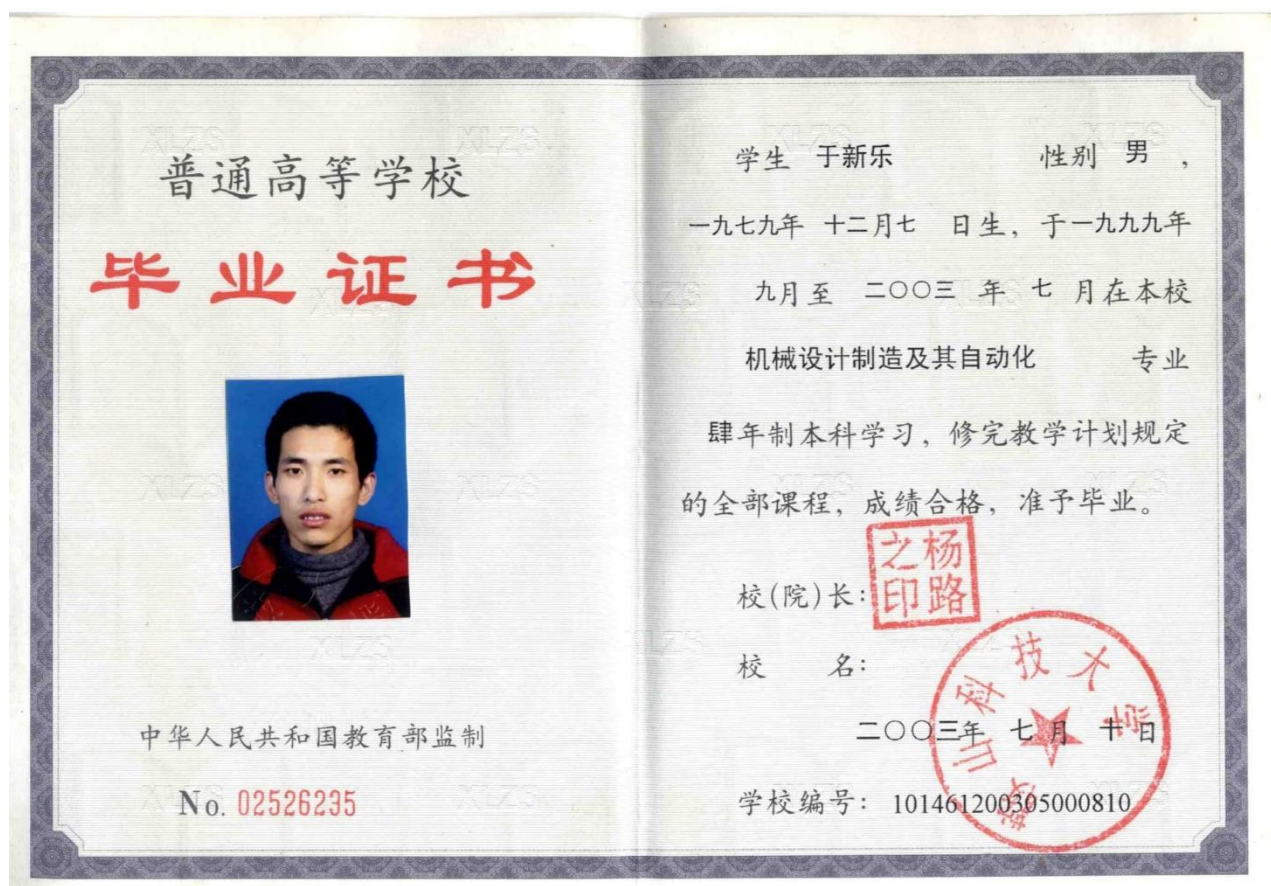 普通高等学校
毕业证书
中华人民共和国教育部监制
No. 02526235
学生 于新乐 性别 男 ,
一九七九年 十二月七 日生, 于一九九九年
九月至 二〇〇三 年 七 月在本校
机械设计制造及其自动化 专业
肆年制本科学习, 修完教学计划规定
的全部课程, 成绩合格, 准予毕业。
校(院)长: 杨路之印
校 名:
鞍山科技大学
二〇〇三年 七 月 十 日
学校编号: 101461200305000810
XLZS